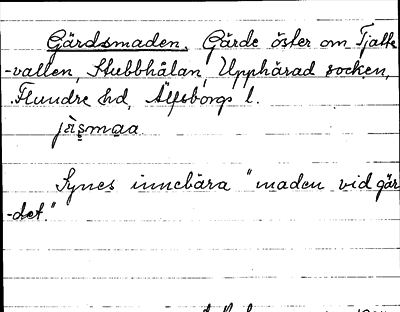 Gärdsmaden. Gärde öster om Tjatte
-vallen, Stubbhålan, Upphärad socken,
Flundre hd, Älfsborgs l.
jäsmaa
Synes innebära "maden vid gär
-det."